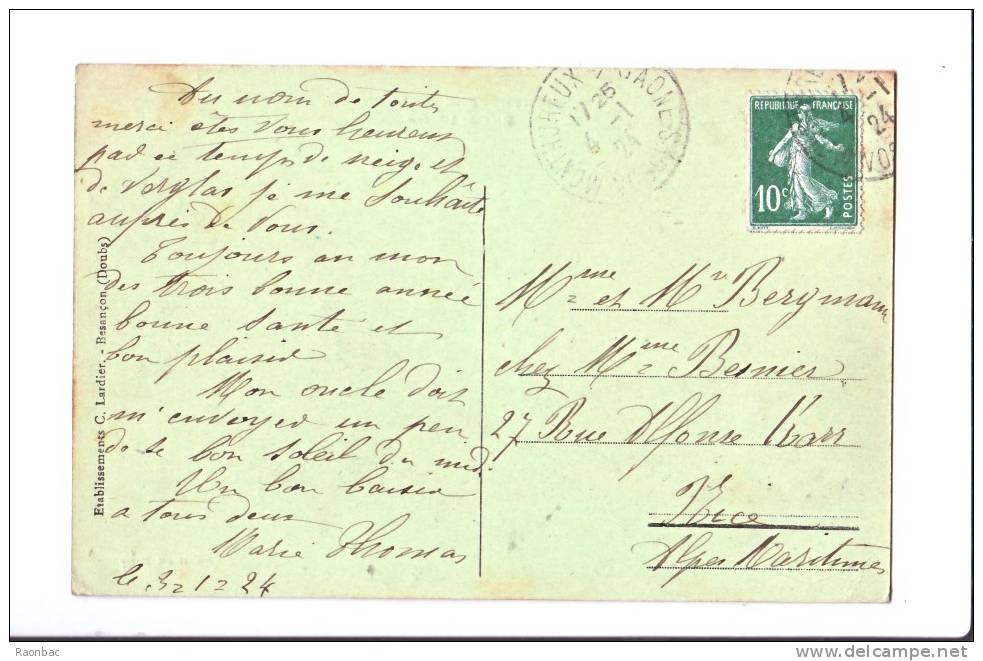 Au nom de toutes
merci êtes vous heureux
par ce temps de neige et
de verglas je me souhaite
auprès de vous.
Toujours au nom
des trois bonne année
bonne santé et
bon plaisir
Mon oncle doit
m'envoyer un peu
de ce bon soleil du midi
Un bon baiser
a tous deux
Marie Thomas
le 3=1=24
Etablissements C. Lardier. - Besançon (Doubs)
MONTHUREUX SAONE
17 25
4 - 1
24
REPUBLIQUE FRANÇAISE
10c
POSTES
4 - 1
24
VOS
Mme et Mr Bergmann
chez Mme Besnier
27 Rue Alfonse Karr
Nice
Alpes Maritimes
Raonbac
www.delcampe.net